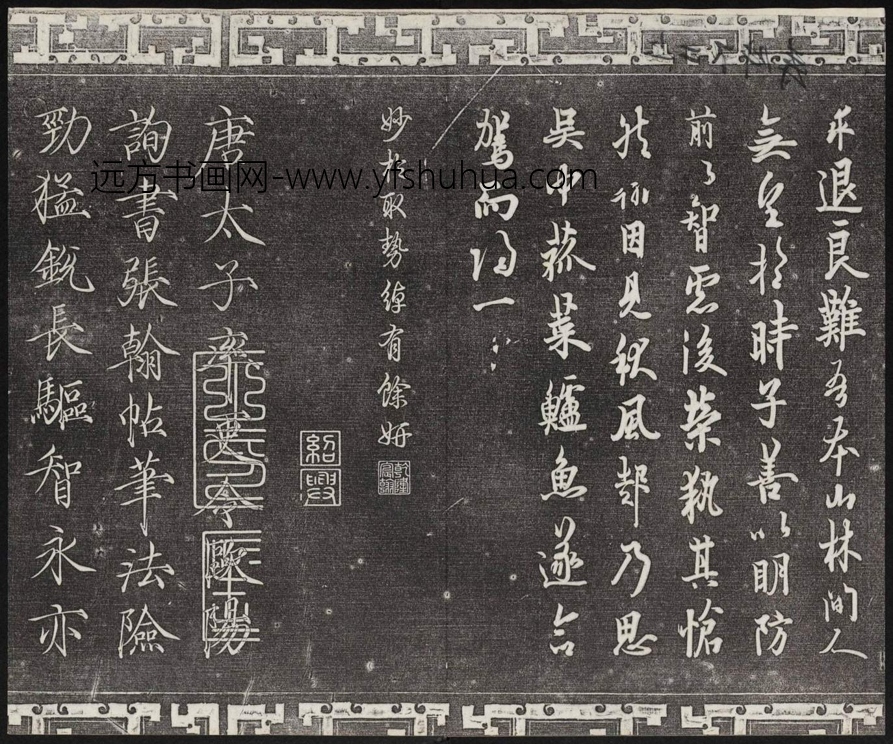 求退良難吾本山林間人
無望於時子善以明防
前以智慮後榮執其愴
然翰因見秋風起乃思
吳中菰菜鱸魚遂命
駕而歸
妙於取勢綽有餘妍
乾隆宸翰
紹興
唐太子率更令歐陽
詢書張翰帖筆法險
勁猛銳長驅智永亦
远方书画网-www.yfshuhua.com